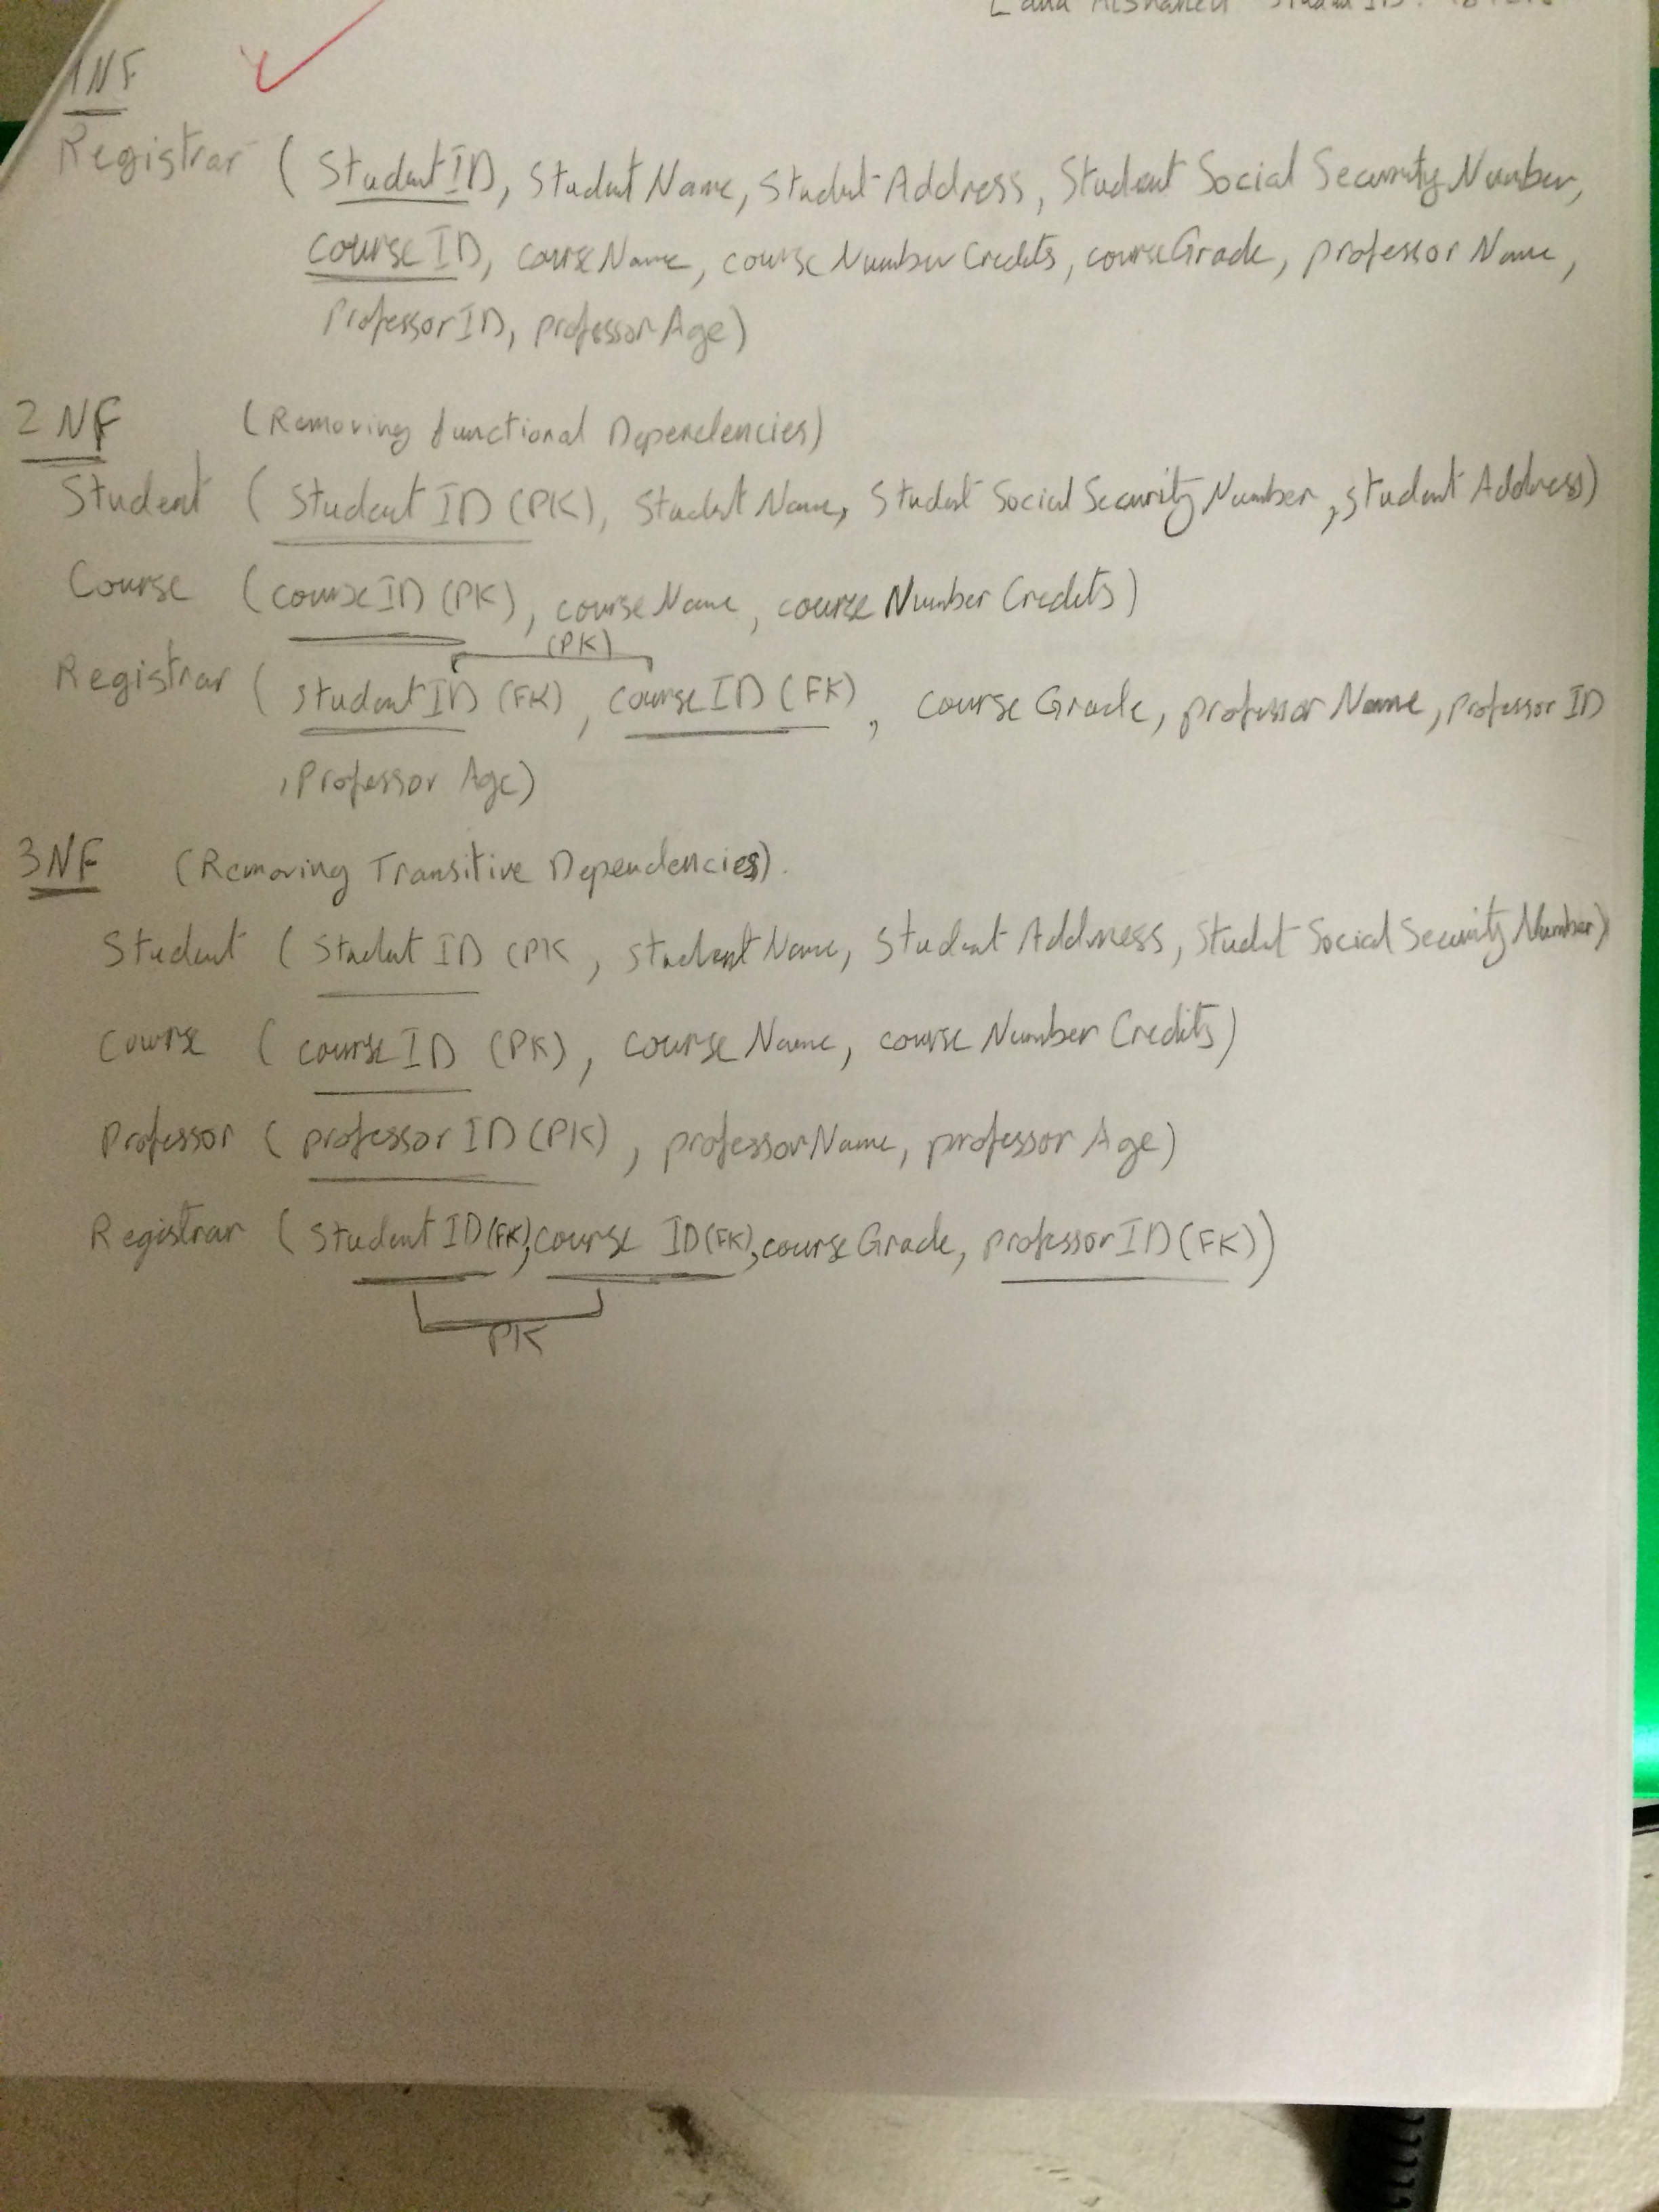 Student ID:
1NF
Registrar ( StudentID, StudentName, StudentAddress, Student Social Security Number,
courseID, courseName, courseNumberCredits, courseGrade, professorName,
ProfessorID, professorAge)
2NF (Removing functional Dependencies)
Student ( Student ID (PK), StudentName, Student Social Security Number, student Address)
Course ( courseID (PK), courseName, courseNumber Credits)
(PK)
Registrar ( studentID (FK), courseID (FK), course Grade, professor Name, professor ID
, Professor Age)
3NF (Removing Transitive Dependencies).
Student ( Student ID (PK, studentName, Student Address, Student Social Security Number)
Course ( courseID (PK), course Name, course Number Credits)
Professor ( professor ID (PK), professorName, professor Age)
Registrar ( Student ID(FK), course ID(FK), course Grade, professorID (FK))
PK